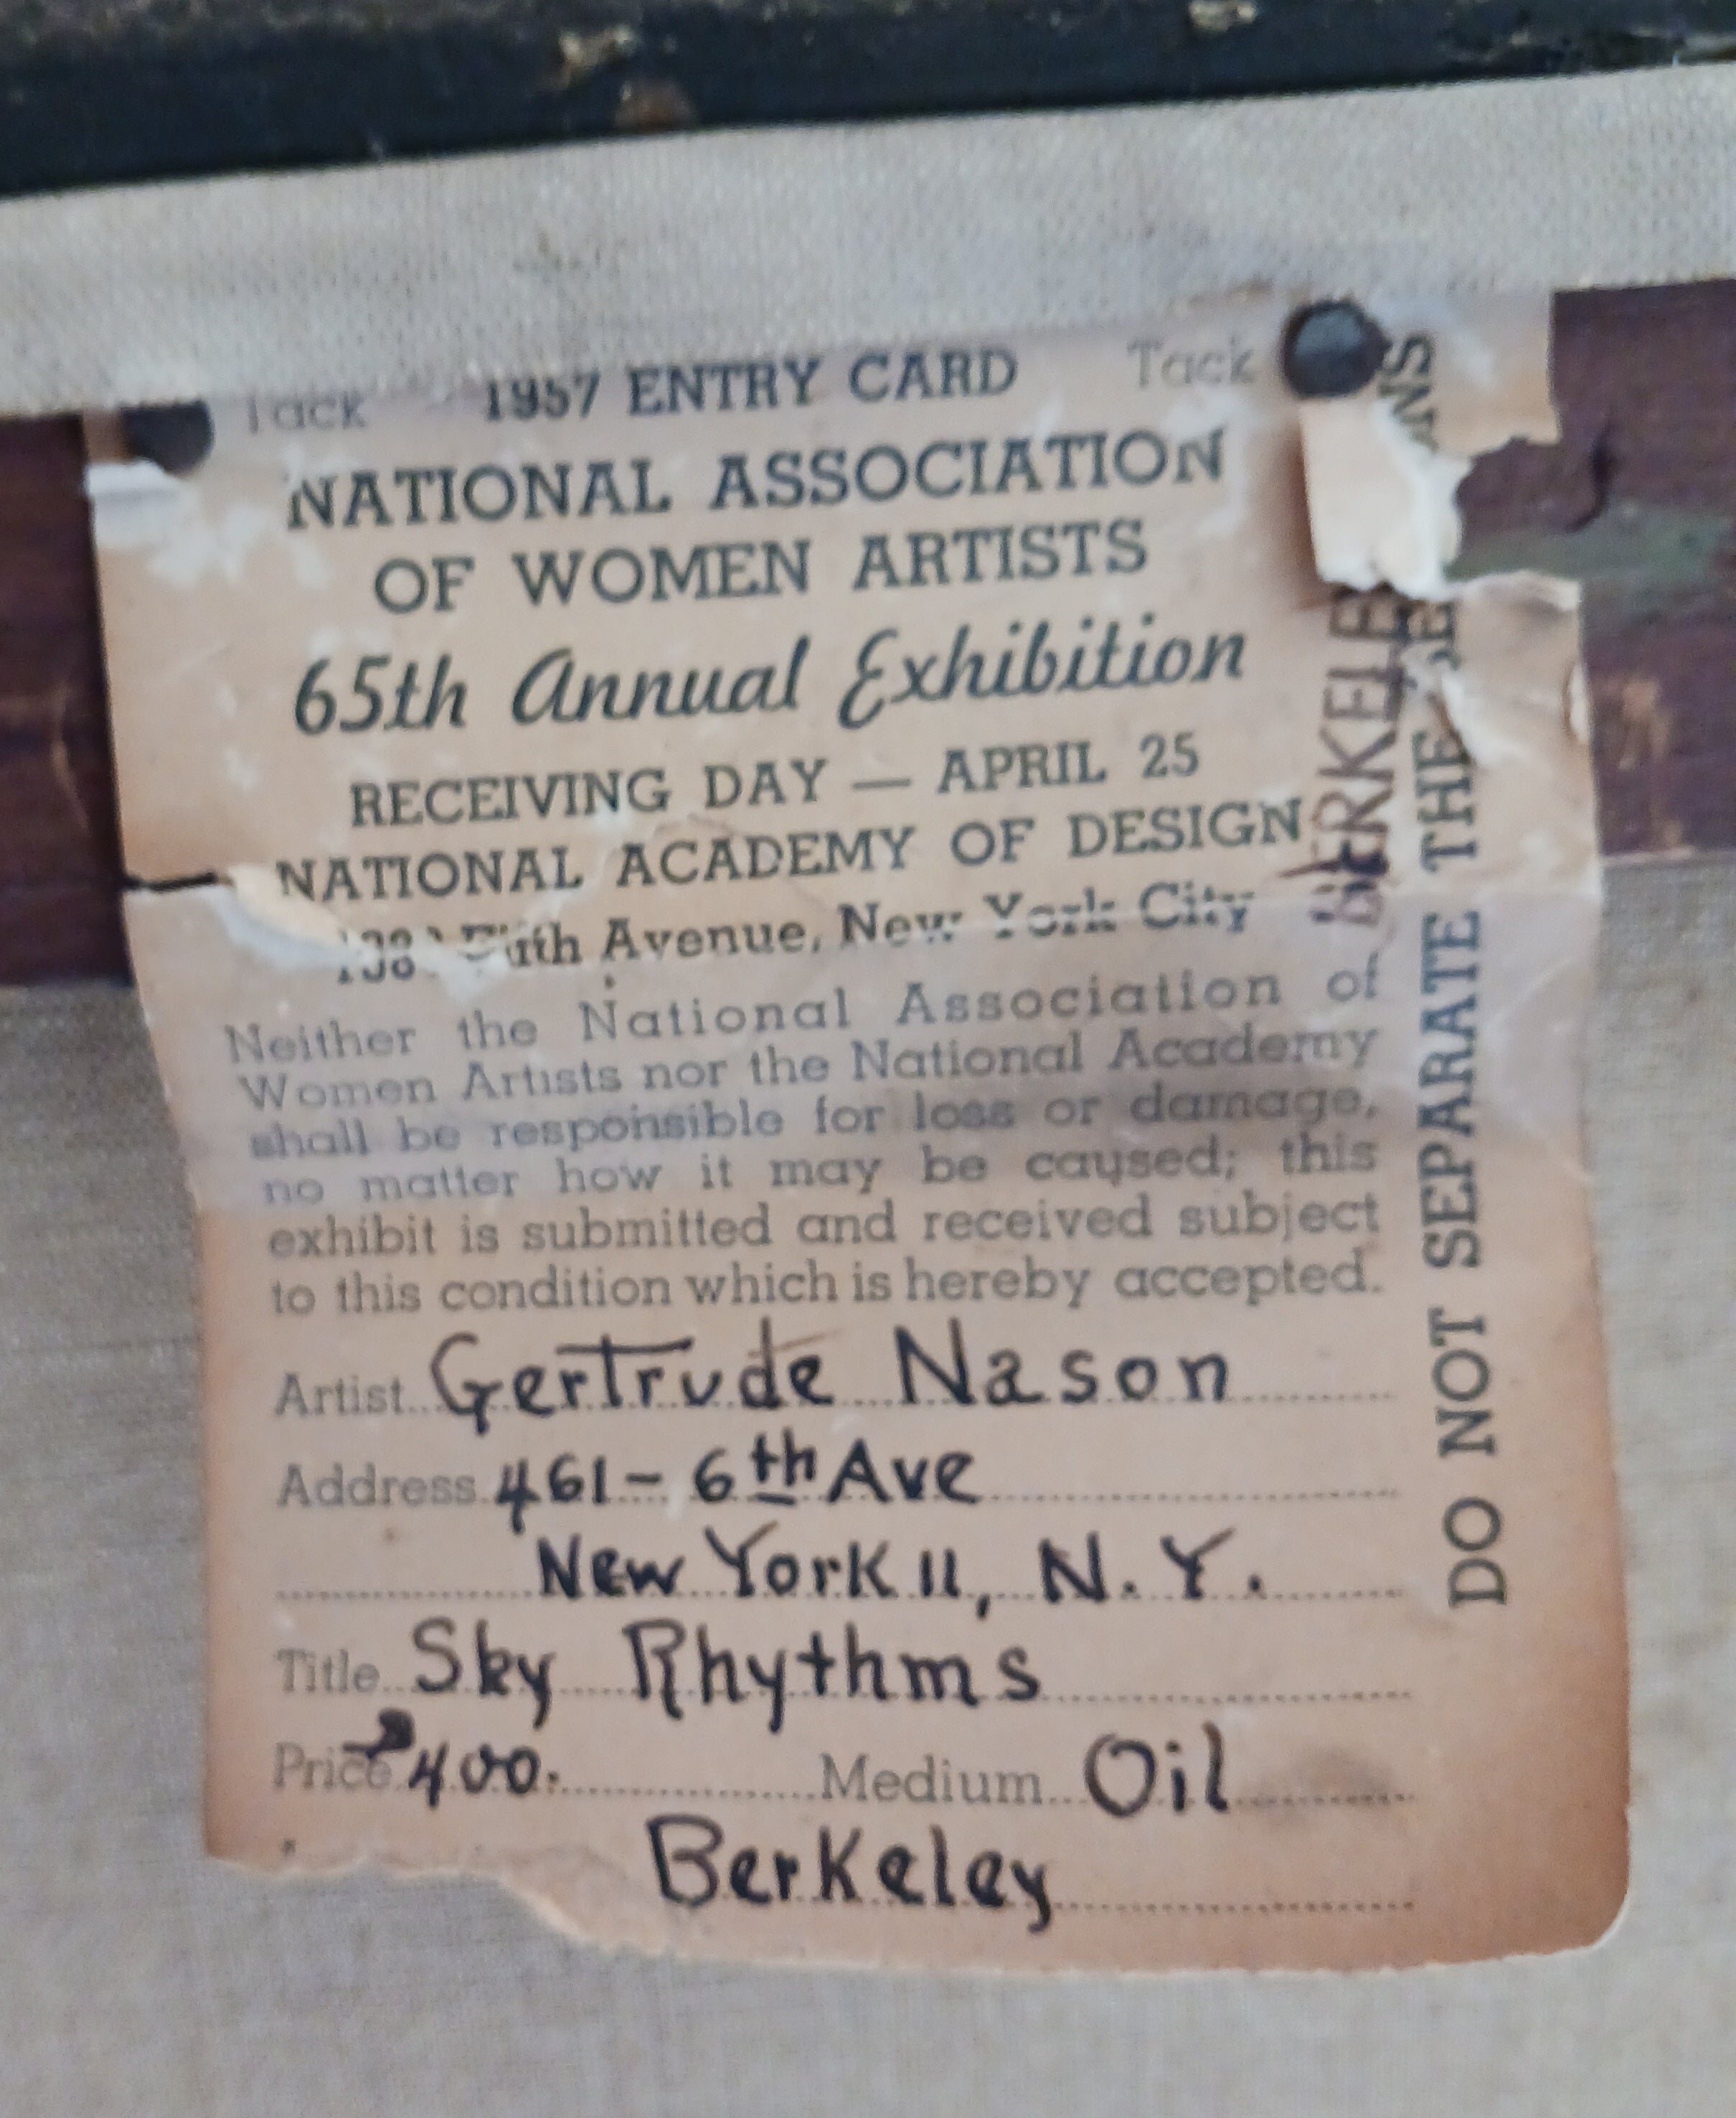 Tack 1957 ENTRY CARD Tack
NATIONAL ASSOCIATION
OF WOMEN ARTISTS
65th Annual Exhibition
RECEIVING DAY — APRIL 25
NATIONAL ACADEMY OF DESIGN
Avenue, New York City
Neither the National Association of
Women Artists nor the National Academy
shall be responsible for loss or damage,
no matter how it may be caused; this
exhibit is submitted and received subject
to this condition which is hereby accepted.
Artist Gertrude Nason
Address 461 - 6th Ave
New York 11, N.Y.
Title Sky Rhythms
Price $400. Medium Oil
Berkeley
DO NOT SEPARATE THE